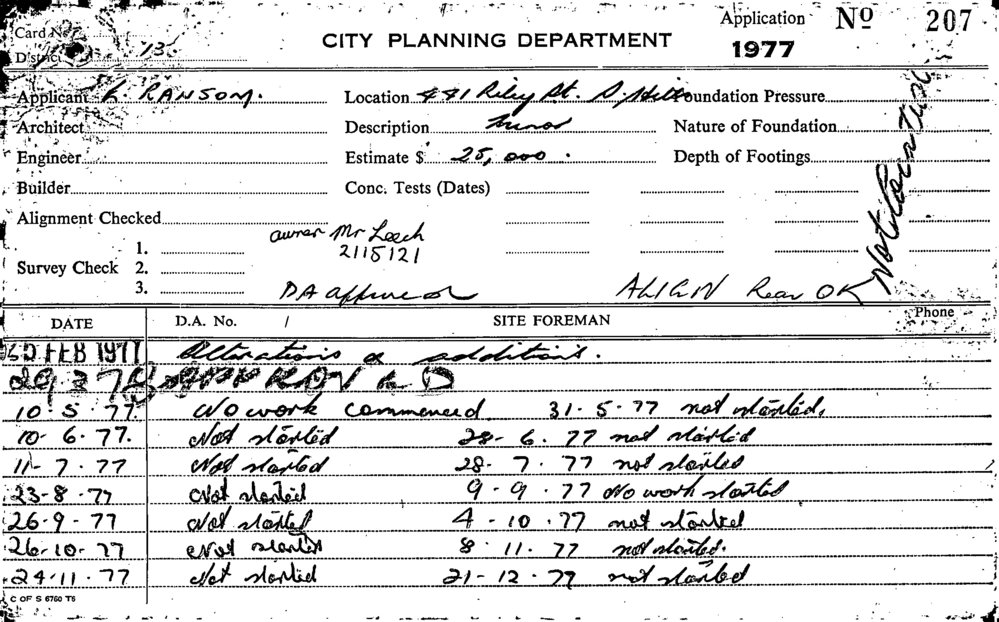 Application Nº 207
Card No
CITY PLANNING DEPARTMENT
District 13 1977
Applicant K. RANSOM. Location 441 Riley St. S. Hills Foundation Pressure
Architect Description Minor Nature of Foundation
Engineer Estimate $ 25,000. Depth of Footings
Builder Conc. Tests (Dates)
Not Constructed
Alignment Checked
owner Mr Leech
1. 2115121
Survey Check 2.
3. DA approved ALIGN Rear OK
DATE D.A. No. / SITE FOREMAN Phone
FEB 1977 Alterations & additions.
APPROVED
10.5.77. No work commenced 31.5.77 not started.
10-6.77. Not started 28-6.77 not started
11-7.77 Not started 28.7.77 not started
23-8.77 Not started 9-9.77 No work started
26-9-77 Not started 4-10.77 not started
26-10-77 Not started 8.11.77 not started.
24.11.77 Not started 21-12.77 not started
C OF S 6760 T5